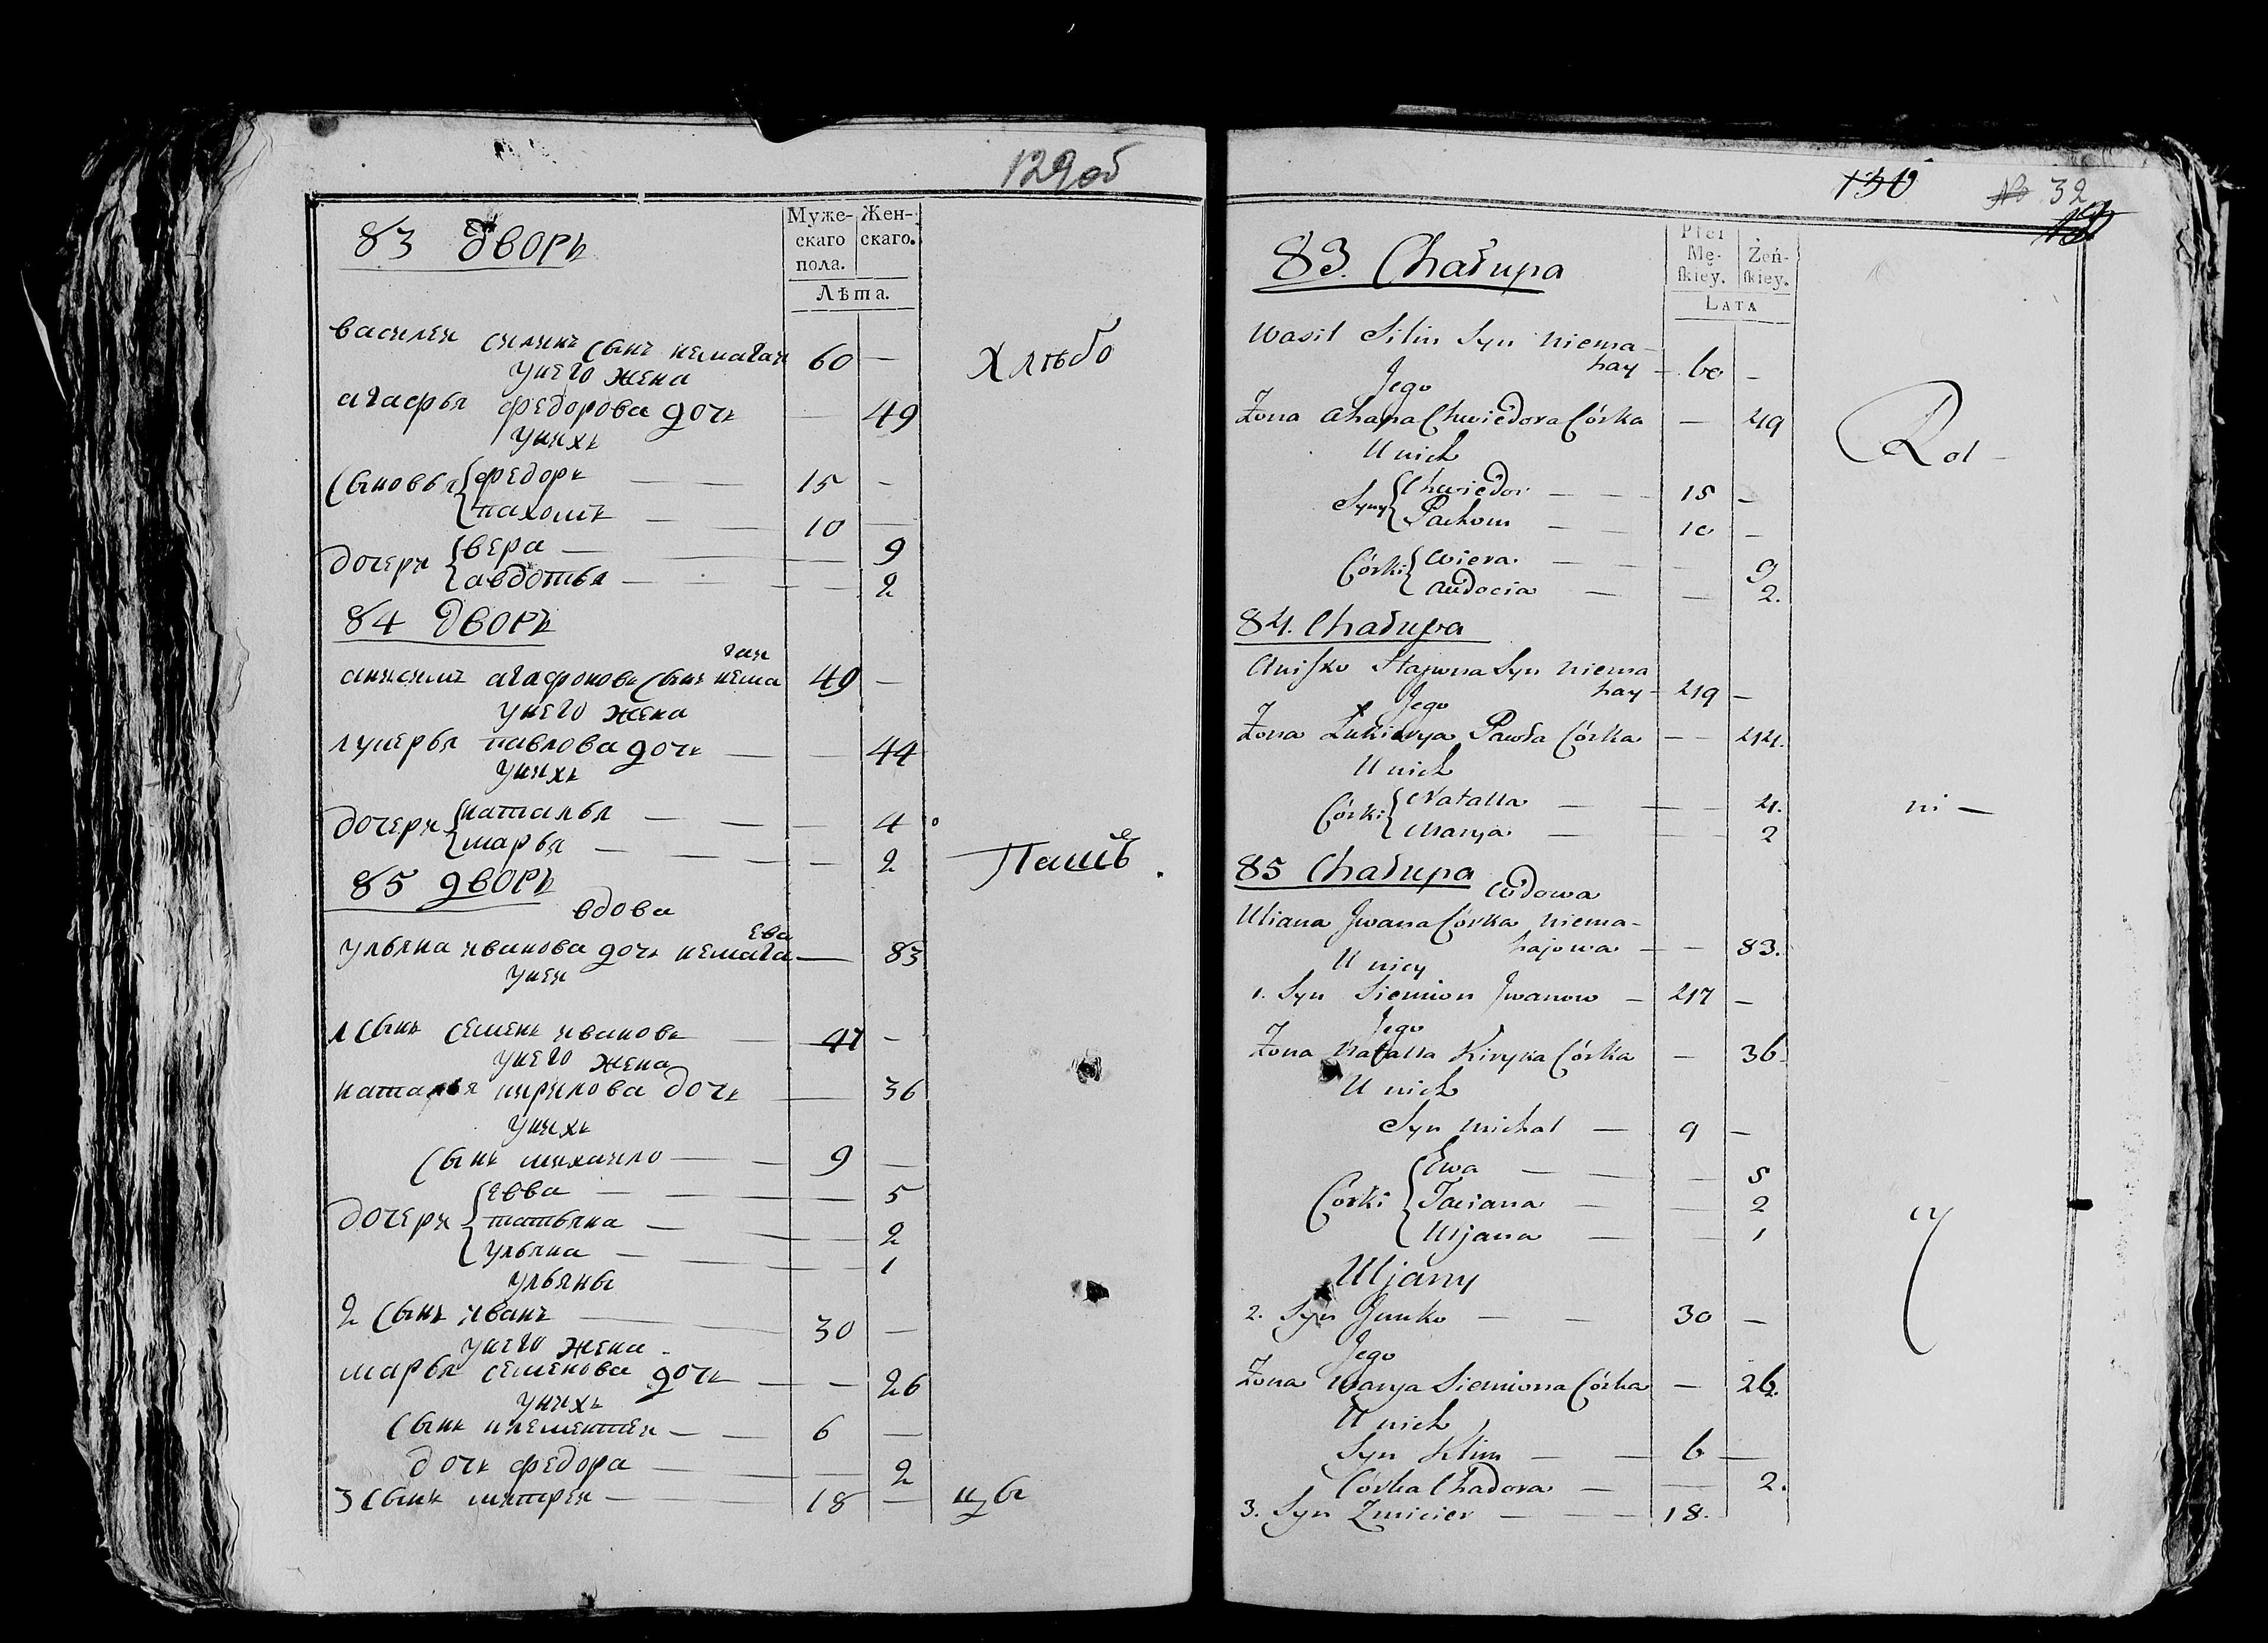 129об
Муже-
скаго
пола.
Жен-
скаго.
Лѣта.
83 дворъ
василеи силинъ сынъ немагаи 60 —
унего жена
агафья федорова дочь — 49
унихъ
сыновья федоръ — — 15 —
пахомъ — — 10 —
дочери вера — — — 9
авдотья — — — 2
84 дворъ
гаи
анисимъ агафоновъ сынъ нема 49 —
унего жена
лукерья павлова дочь — — 44
унихъ
дочери наталья — — — 4
марья — — — 2
85 дворъ
вдова
ева
ульяна иванова дочь немага — 83
унеи
1 сынъ семенъ ивановъ — 47 —
унего жена
наталья кирилова дочь — 36
унихъ
сынъ михаило — — 9 —
дочери евва — — — 5
татьяна — — — 2
ульяна — — — 1
ульяны
2 сынъ иванъ — — 30 —
унего жена
марья семенова дочь — — 26
унихъ
сынъ климентеи — — 6 —
дочь федора — — 2
3 сынъ митреи — — 18 —
Хлѣбо
Паше
цы
130
No 32
Płci
Mę-
skiey.
Żeń-
skiey.
LATA
83. Chałupa
Wasil Silin Syn Niema-
hay — 60 —
Jego
Żona Ahapa Chwiedora Córka — 49
U nich
Syny Chwiedor — — 15 —
Pachom — — 10 —
Córki Wiera — — — 9
Audocia — — 2.
84. Chałupa
Anisko Hapona Syn Niema
hay — 49 —
Jego
Żona Łukierya Pawła Córka — — 44.
U nich
Córki Natalla — — — 4.
Marya — — 2
85 Chałupa
Wdowa
Uliana Jwana Córka Niema-
hajowa — — 83.
U niey
1. Syn Siemion Jwanow — 47 —
Jego
Żona Natalla Kiryła Córka — 36.
U nich
Syn Michał — 9 —
Córki Ewa — — — 5
Taciana — — 2
Uljana — — 1
Uljany
2. Syn Janko — — 30 —
Jego
Żona Marya Siemiona Córka — 26.
U nich
Syn Klim — — 6 —
Córka Chadora — — 2.
3. Syn Zmicier — — — 18.
Rol —
ni —
cy